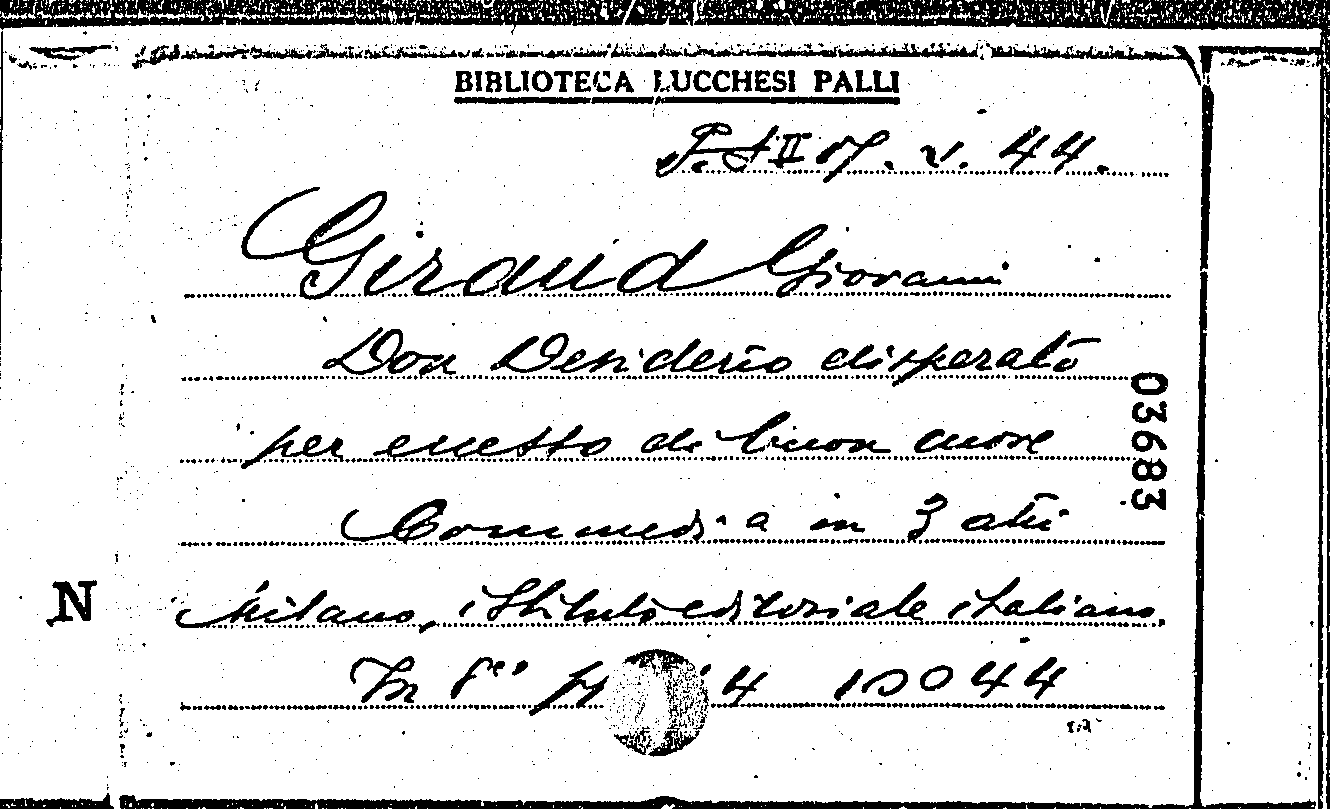 BIBLIOTECA LUCCHESI PALLI
44.
Giraud Giovanni
Don Desiderio disperato
per eccesso di buon cuore
03683
Commedia in 3 atti
N
Milano, istituto editoriale italiano.
In 8º 4 10044